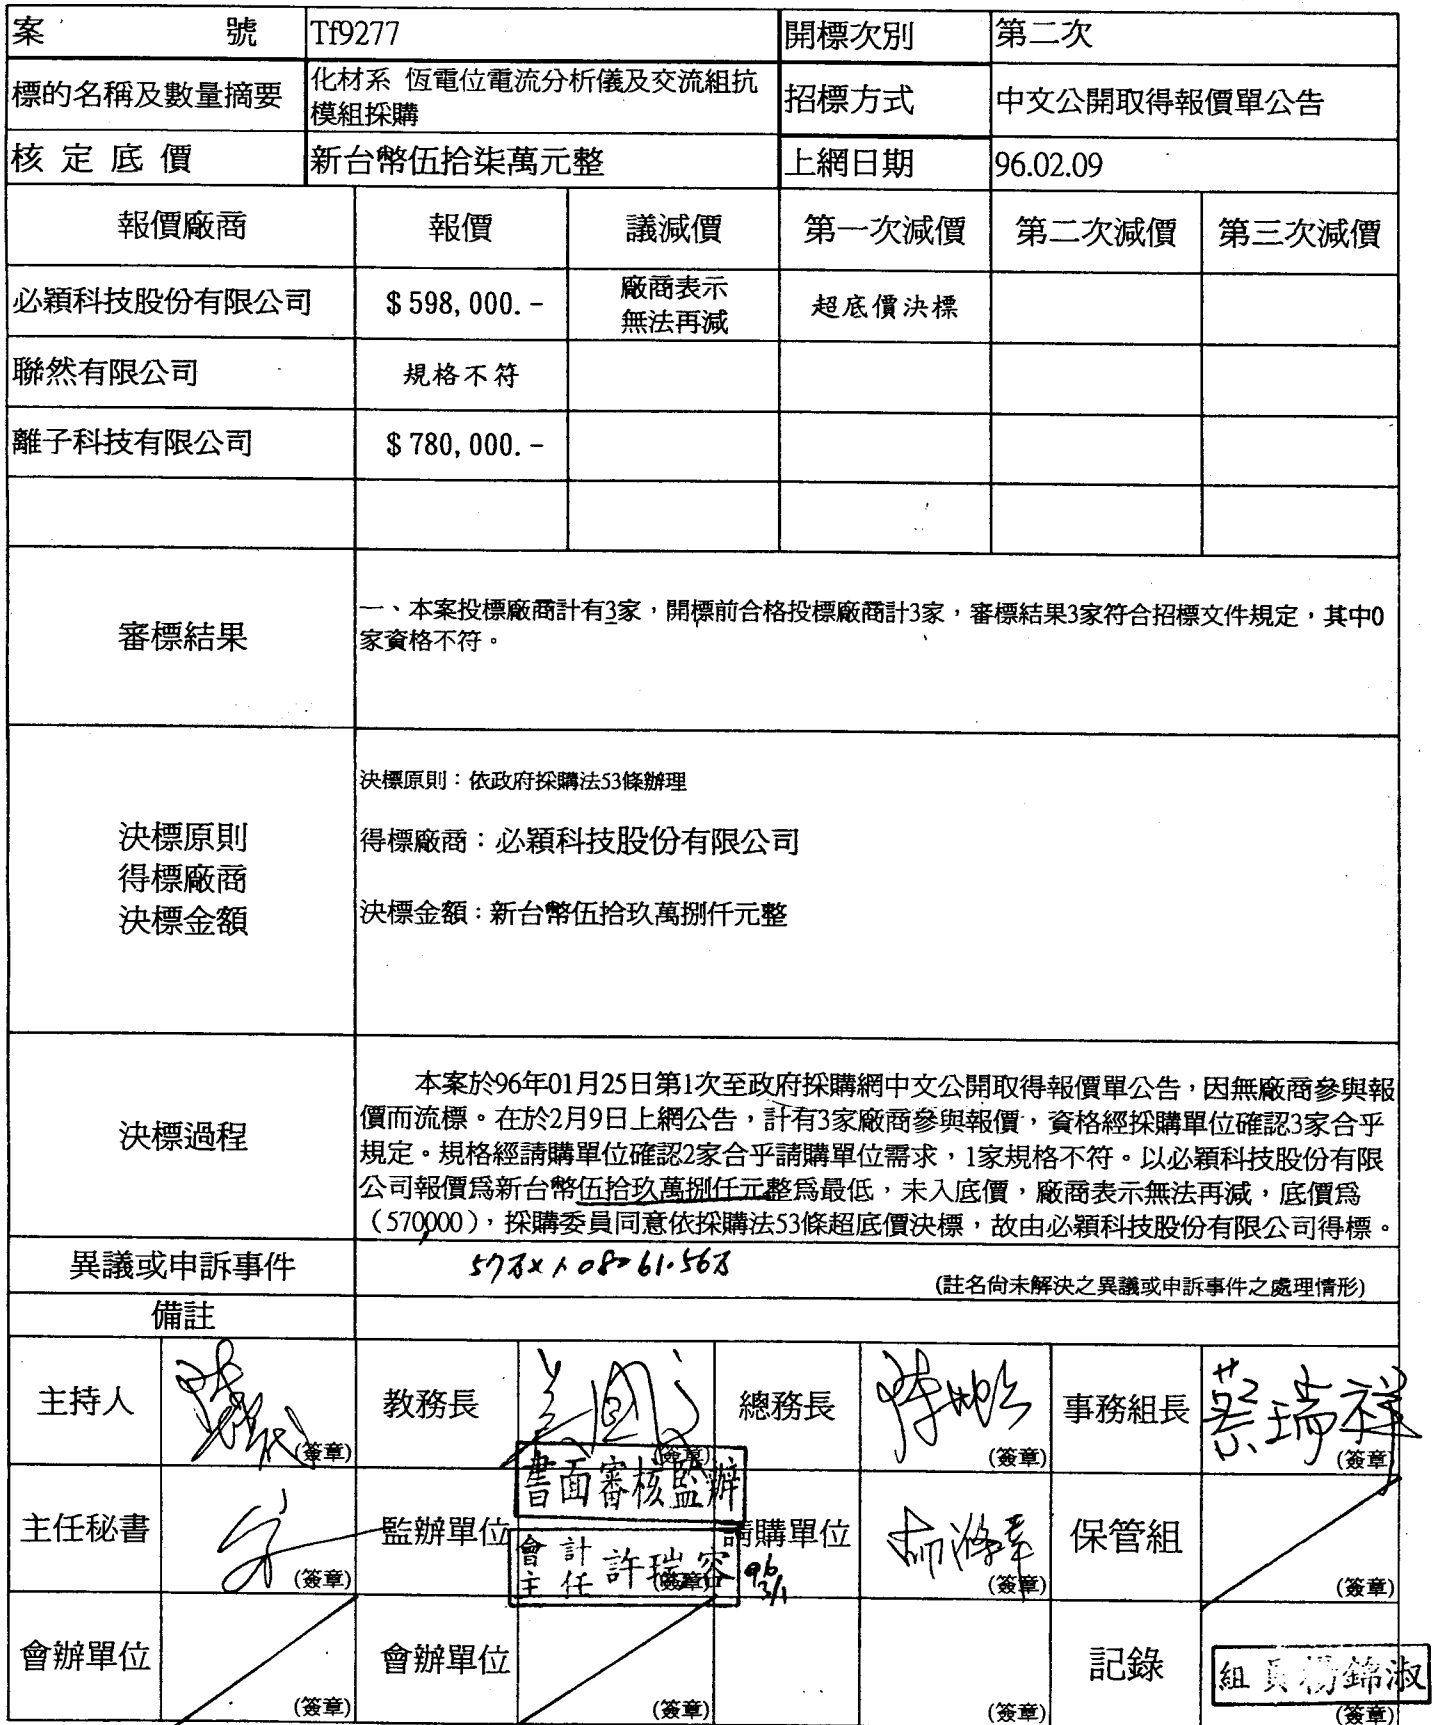 案 號 Tf9277 開標次別 第二次
標的名稱及數量摘要 化材系 恆電位電流分析儀及交流組抗
模組採購 招標方式 中文公開取得報價單公告
核定底價 新台幣伍拾柒萬元整 上網日期 96.02.09
報價廠商 報價 議減價 第一次減價 第二次減價 第三次減價
必穎科技股份有限公司 $598,000.- 廠商表示
無法再減 超底價決標
聯然有限公司 規格不符
離子科技有限公司 $780,000.-
審標結果
一、本案投標廠商計有3家，開標前合格投標廠商計3家，審標結果3家符合招標文件規定，其中0
家資格不符。
決標原則
得標廠商
決標金額
決標原則：依政府採購法53條辦理
得標廠商：必穎科技股份有限公司
決標金額：新台幣伍拾玖萬捌仟元整
決標過程
本案於96年01月25日第1次至政府採購網中文公開取得報價單公告，因無廠商參與報
價而流標。在於2月9日上網公告，計有3家廠商參與報價，資格經採購單位確認3家合乎
規定。規格經請購單位確認2家合乎請購單位需求，1家規格不符。以必穎科技股份有限
公司報價爲新台幣伍拾玖萬捌仟元整爲最低，未入底價，廠商表示無法再減，底價爲
（570000），採購委員同意依採購法53條超底價決標，故由必穎科技股份有限公司得標。
異議或申訴事件 57万×1.08=61.56万 (註名尙未解決之異議或申訴事件之處理情形)
備註
主持人 (簽章) 教務長 (簽章) 總務長 (簽章) 事務組長 蔡瑞祥 (簽章)
書面審核監辦
主任秘書 (簽章) 監辦單位 (簽章) 請購單位 (簽章) 保管組 (簽章)
會計
主任 許瑞容 96
3/1
會辦單位 (簽章) 會辦單位 (簽章) (簽章) 記錄 組員楊錦淑 (簽章)